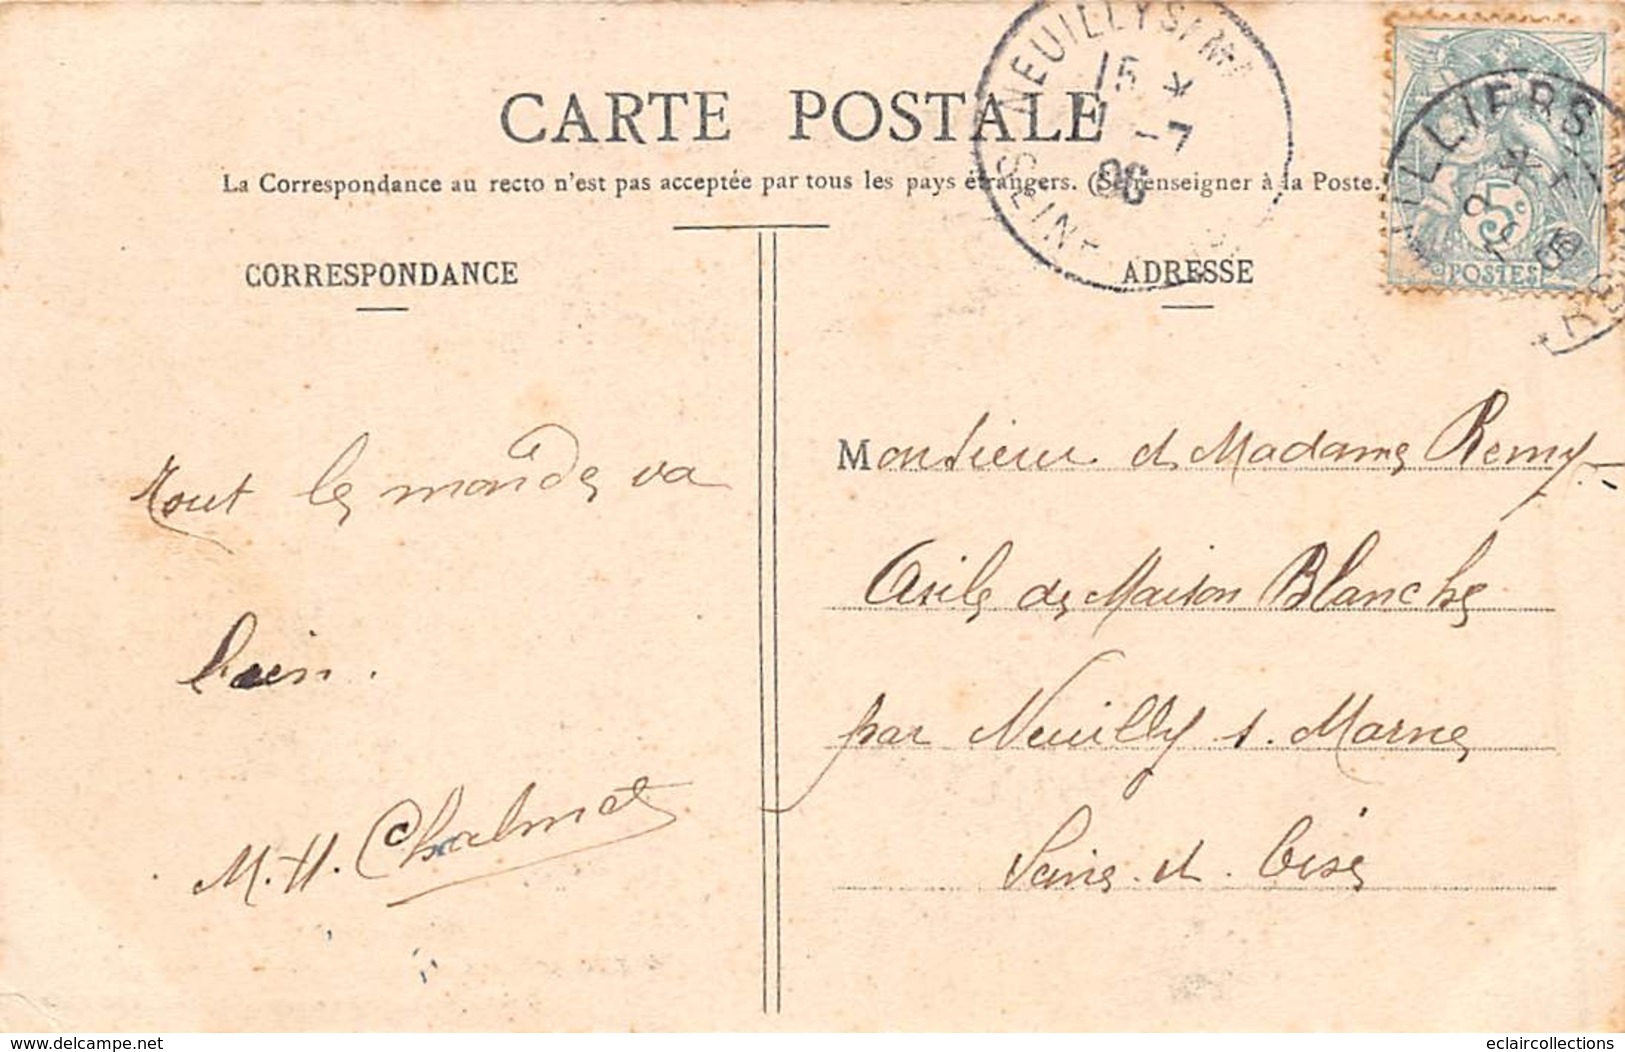 CARTE POSTALE
La Correspondance au recto n'est pas acceptée par tous les pays étrangers. (Se renseigner à la Poste.
CORRESPONDANCE
ADRESSE
NEUILLY S/ M
15 *
-7
06
SEINE
ILLIERS
5c
POSTES
Tout le monde va
bien.
M. H. Chalmet
Monsieur et Madame Remy
Asile de Maison Blanche
par Neuilly s. Marne
Seine et Oise
www.delcampe.net
eclaircollections